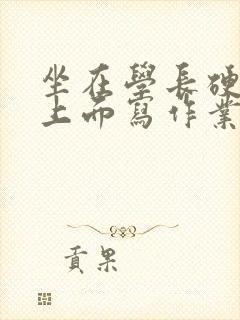 坐在學長硬
上而寫作業
貢果